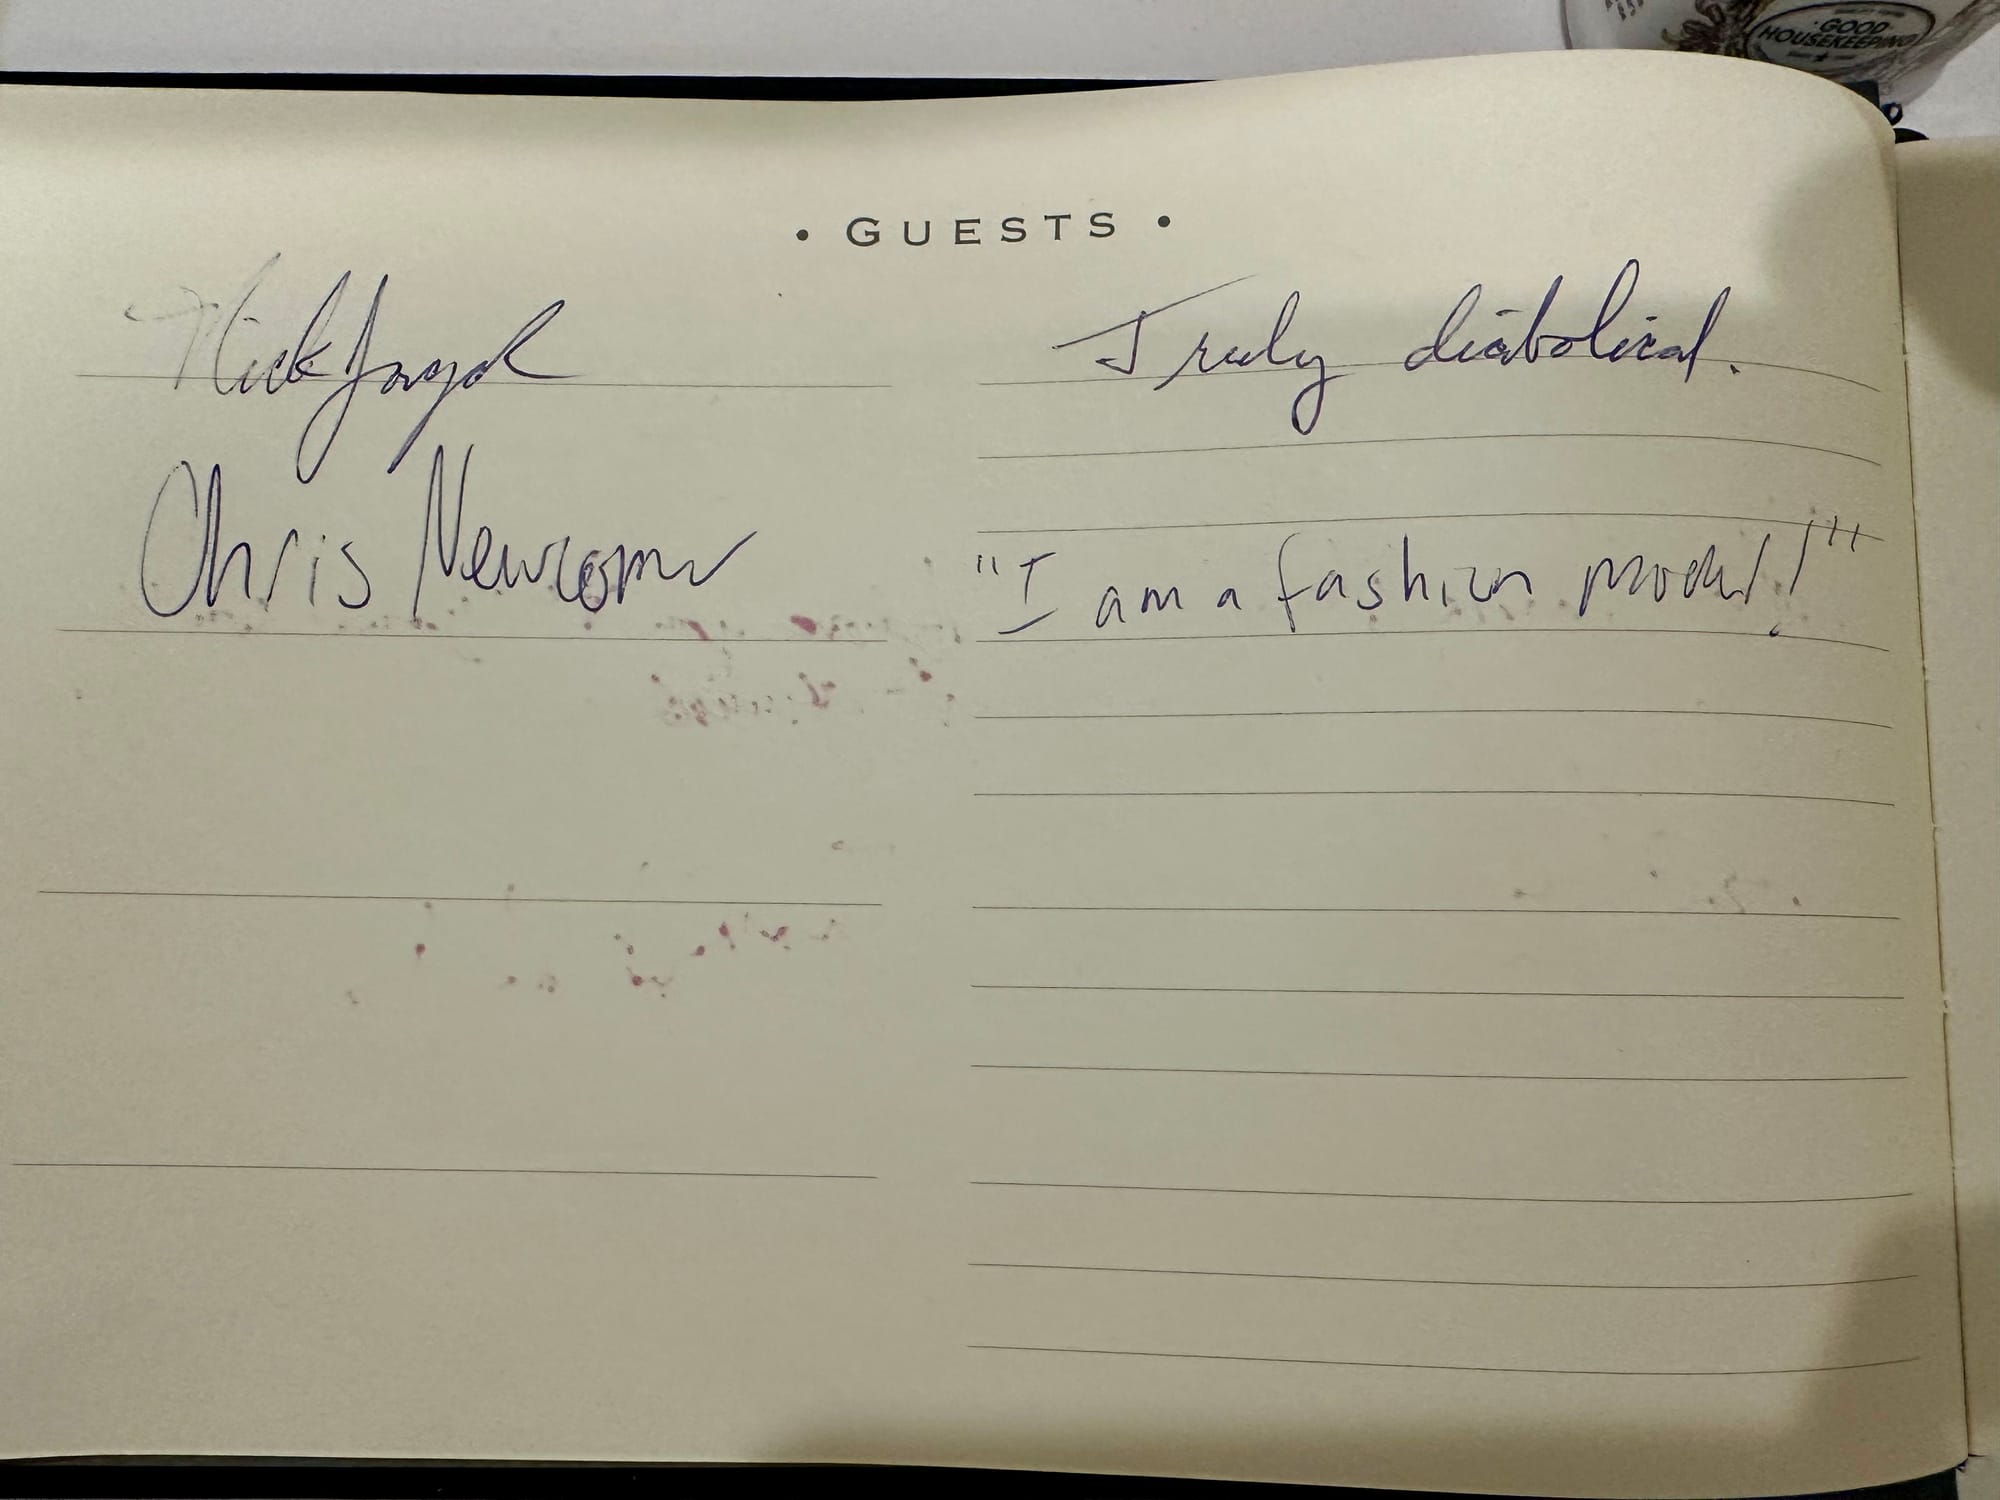 GOOD
HOUSEKEEPING
• GUESTS •
Nick
Truly diabolical.
Chris Newcomer
"I am a fashion model!"